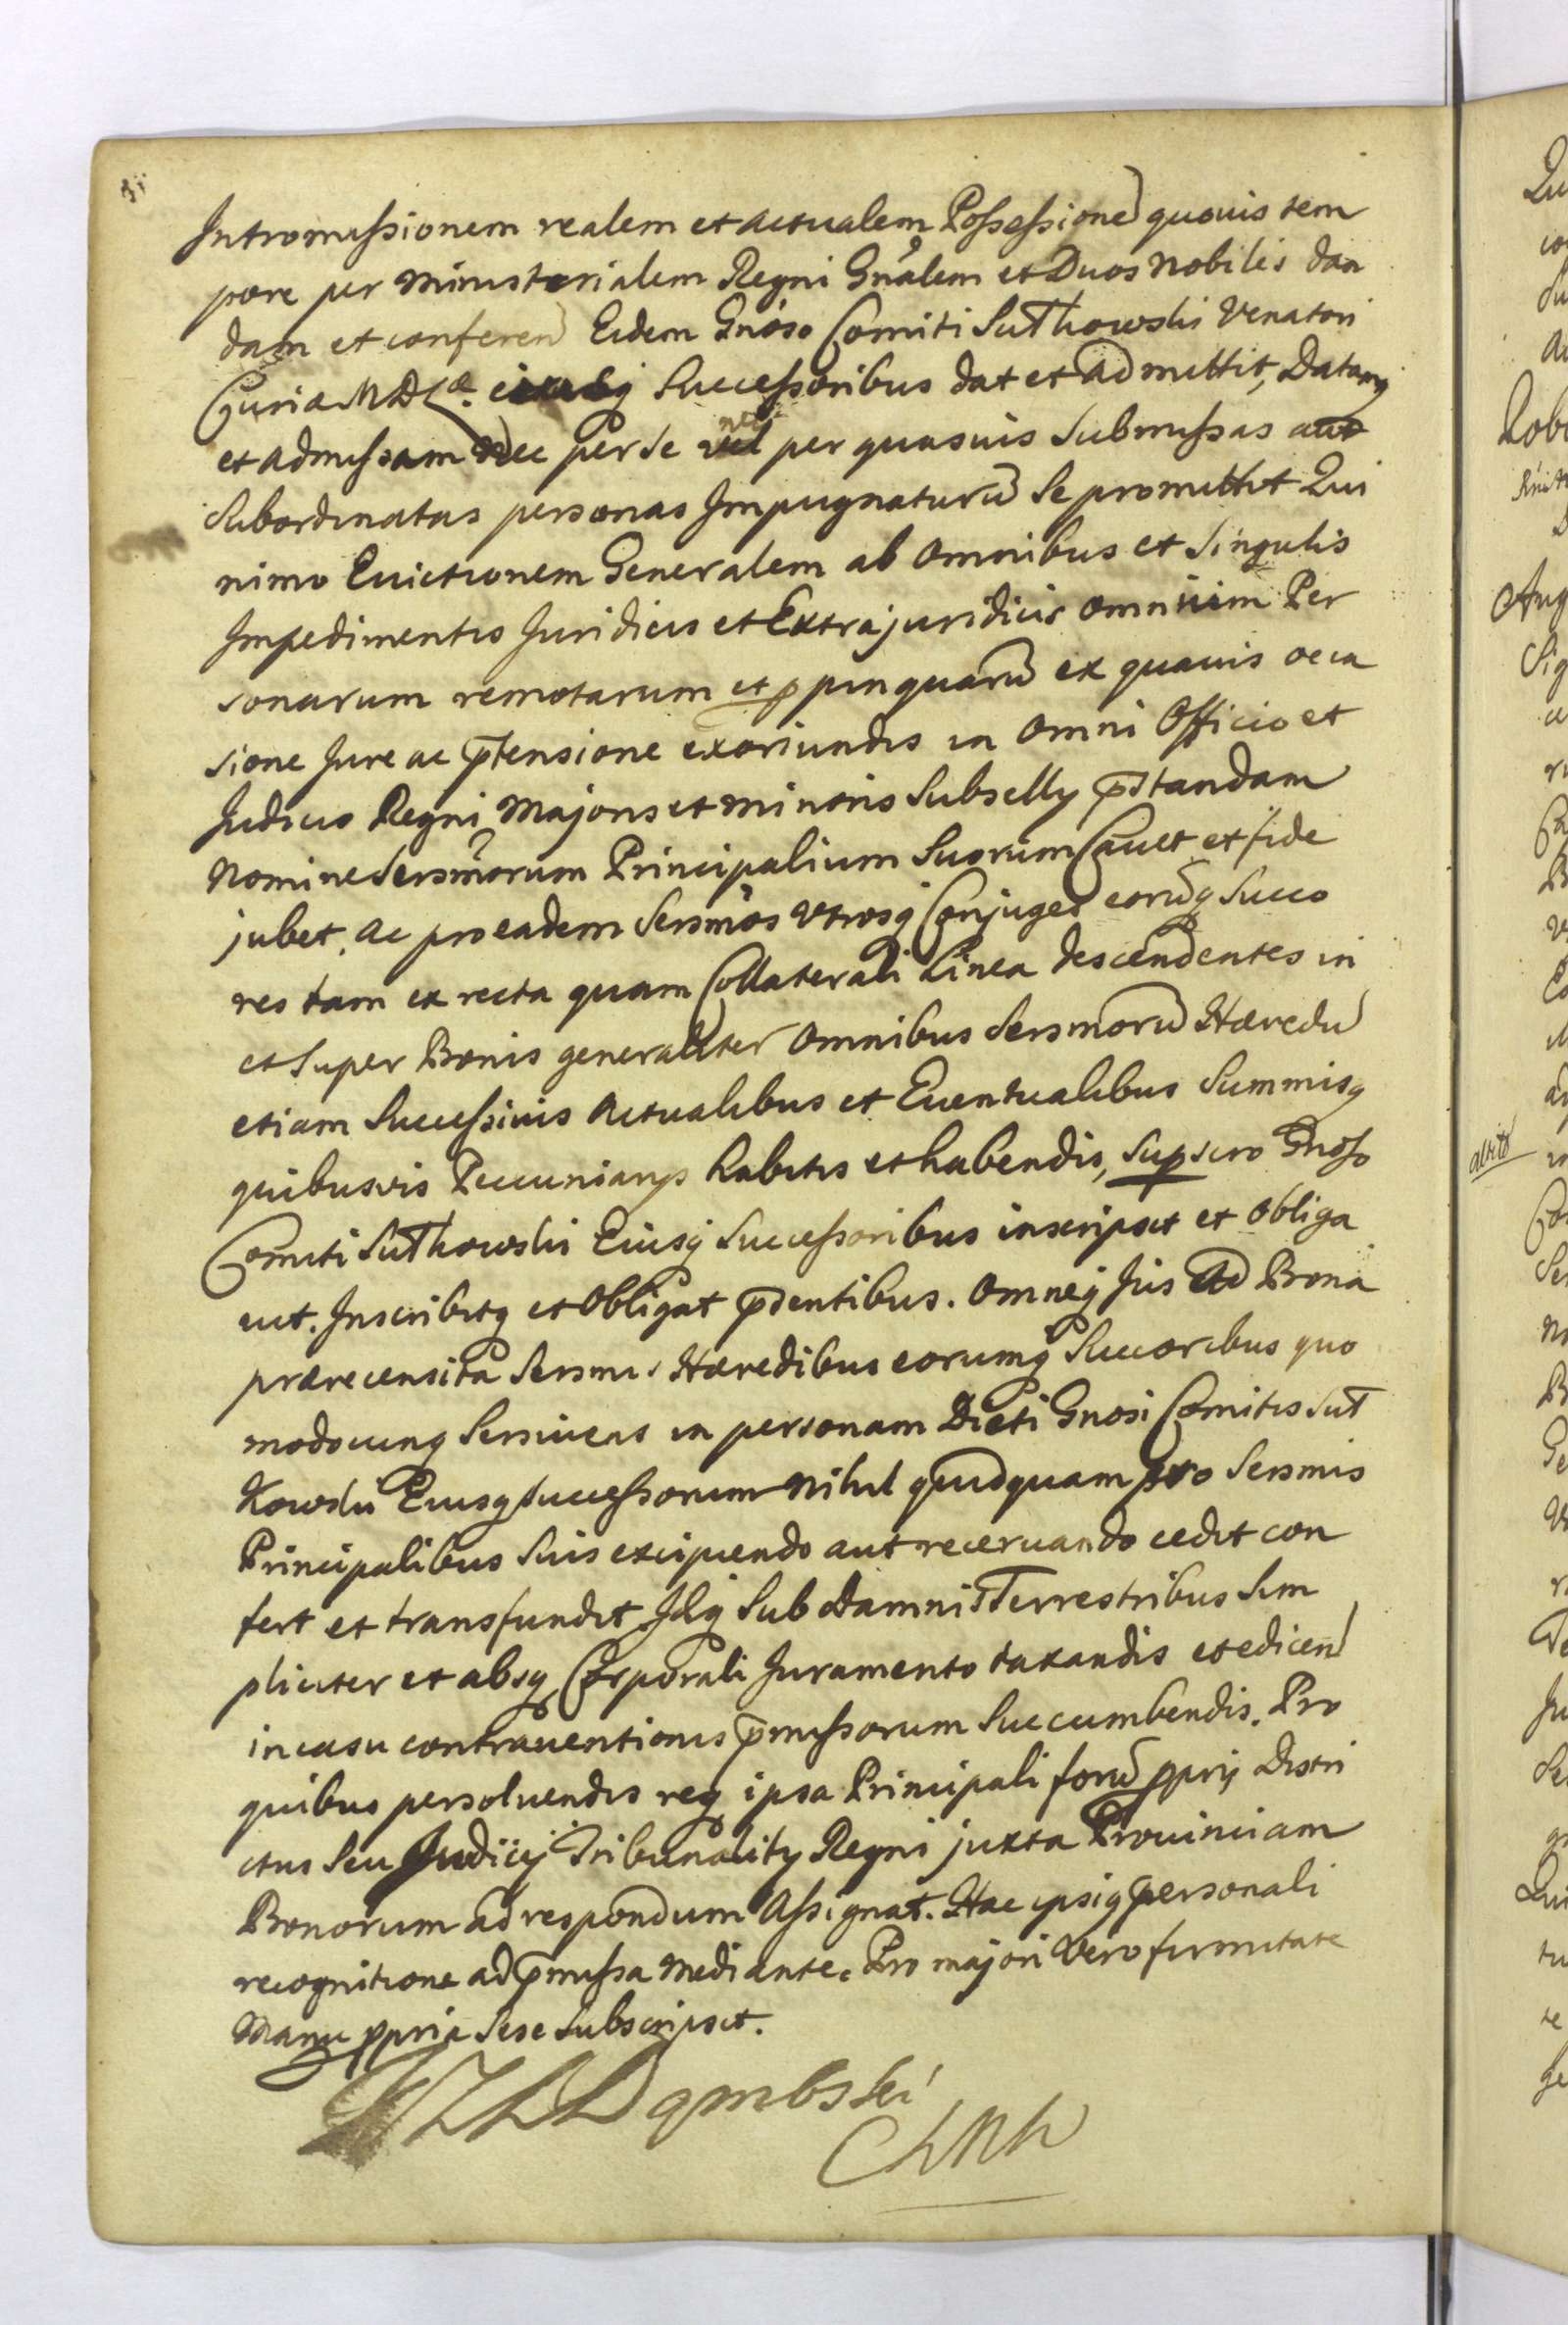 Intromissionem realem et actualem Possessione͞ quovis tem
pore per Ministerialem Regni Gnālem et Duos Nobiles dan
dam et conferen͞ Eidem Gnōso Comiti Sułkowski Venatori
Curiæ M D L. ejusq Successoribus dat et admittit, Datamq
et admissam nec per se nec per quasvis Submissas aut
Subordinatas personas Impugnaturu͞ Se promittit Qui
nimo Evictionem Generalem ab omnibus et Singulis
Impedimentis Juridicis et Extrajuridicis omnium Per
sonarum remotarum et ppinquaru͞ ex quavis occa
sione Jure ac p̄tensione exoriundis in omni Officio et
Judicio Regni Majoris et minoris Subsellÿ p̄standam
Nomine Sersm̄orum Principalium Suorum Cavet et fide
jubet, ac pro eadem Sersm̄os Utrosq Conjuges eoru͞q Succo
res tam ex recta quam Collaterali Linea descendentes in
et Super Bonis generaliter omnibus Sersmoru͞ Hæredu͞
etiam Successivis Actualibus et Eventualibus Summisq
quibusvis Pecuniarÿs habitis et habendis, supscro Gnoso
Comiti Sułkowski Eiusq Successoribus inscripsit et obliga
vit. Inscribitq et Obligat p̄dentibus. Omneq Jus Ad Bona
prærecensita Sersmis Hæredibus eorumq Succoribus quo
modocunq Serviens in personam Dicti Gnosi Comitis Suł
kowski Eiusq Successorum Nihil quidquam pro Sersmis
Principalibus Suis excipiendo aut reservando cedit con
fert et transfundit Idq Sub Damnis Terrestribus Sim
pliciter et absq Corporali Juramento taxandis et edicen͞
in casu contraventionis p̄missorum Succumbendis. Pro
quibus persolvendis req ipsa Principali foru͞ pprij Distri
ctus Seu Judicij Tribunalitij Regni juxta Provinciam
Bonorum ad respondum Assignat. Hac ipsiq personali
recognitione ad p̄missa mediante. Pro majori Vero firmitate
Manu ppria Sese Subscripsit.
Dąmbski